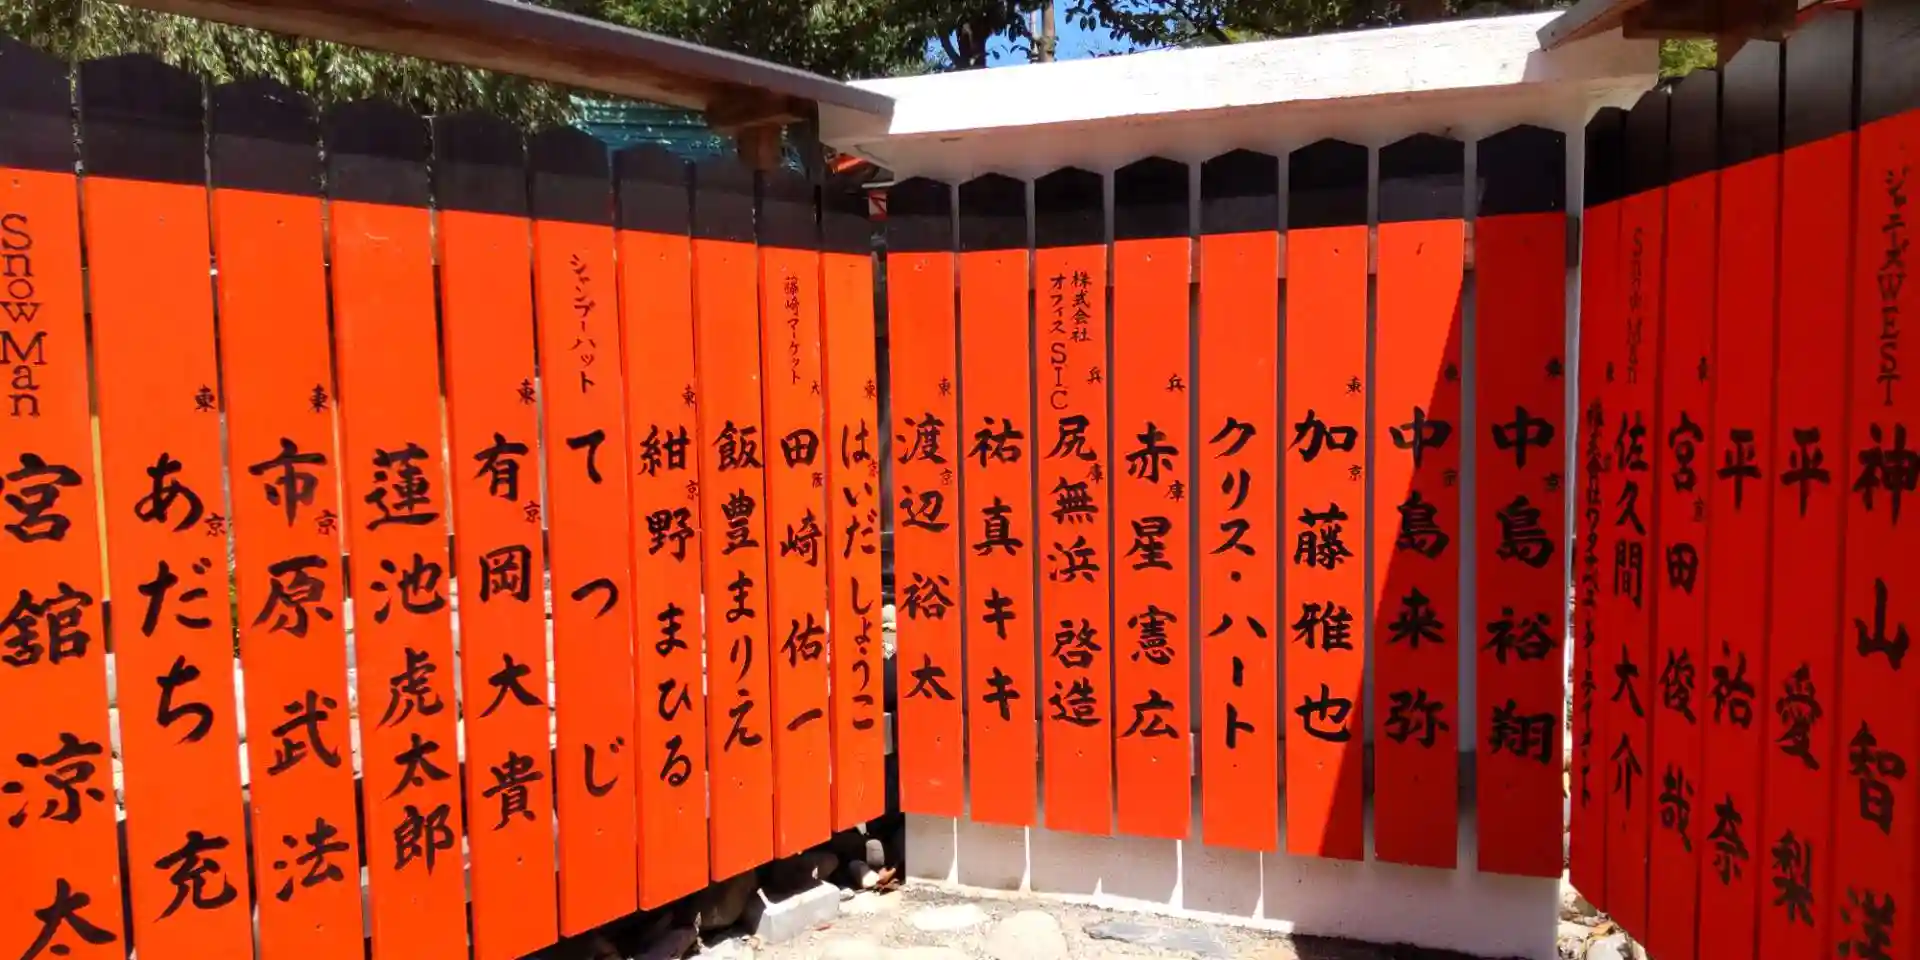 Snow Man
宮舘 涼太
東京
あだち 充
東京
市原 武法
蓮池 虎太郎
東京
有岡 大貴
シャンプーハット
てつじ
東京
紺野 まひる
飯豊まりえ
藤崎マーケット
大阪
田崎 佑一
東京
はいだしょうこ
東京
渡辺 裕太
祐真キキ
株式会社
オフィスSIC
兵庫
尻無浜 啓造
兵庫
赤星 憲広
クリス・ハート
東京
加藤雅也
東京
中島来弥
東京
中島 裕翔
Snow Man
東京
佐久間 大介
東京
宮田 俊哉
平 祐奈
平 愛梨
ジャニーズWEST
神山 智洋